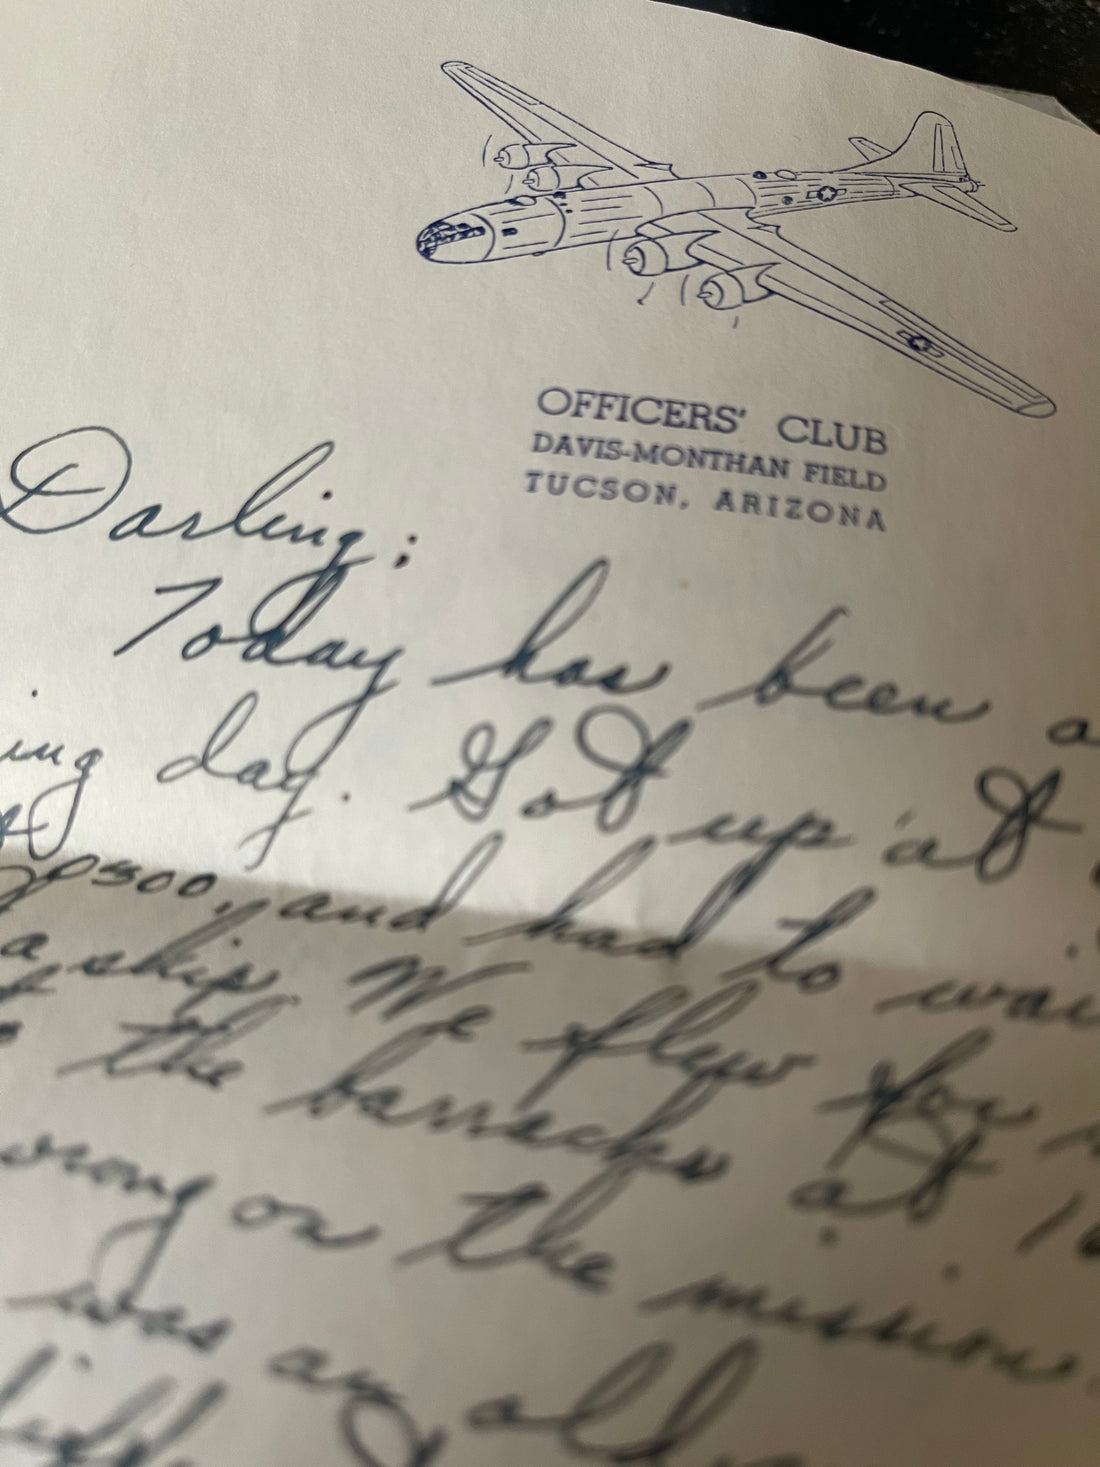 OFFICERS' CLUB
DAVIS-MONTHAN FIELD
TUCSON, ARIZONA
Darling:
Today has been a
ing day. Got up at
0500, and had to wai
a ship. We flew for
the barracks at 16
wrong on the mission.
was an old